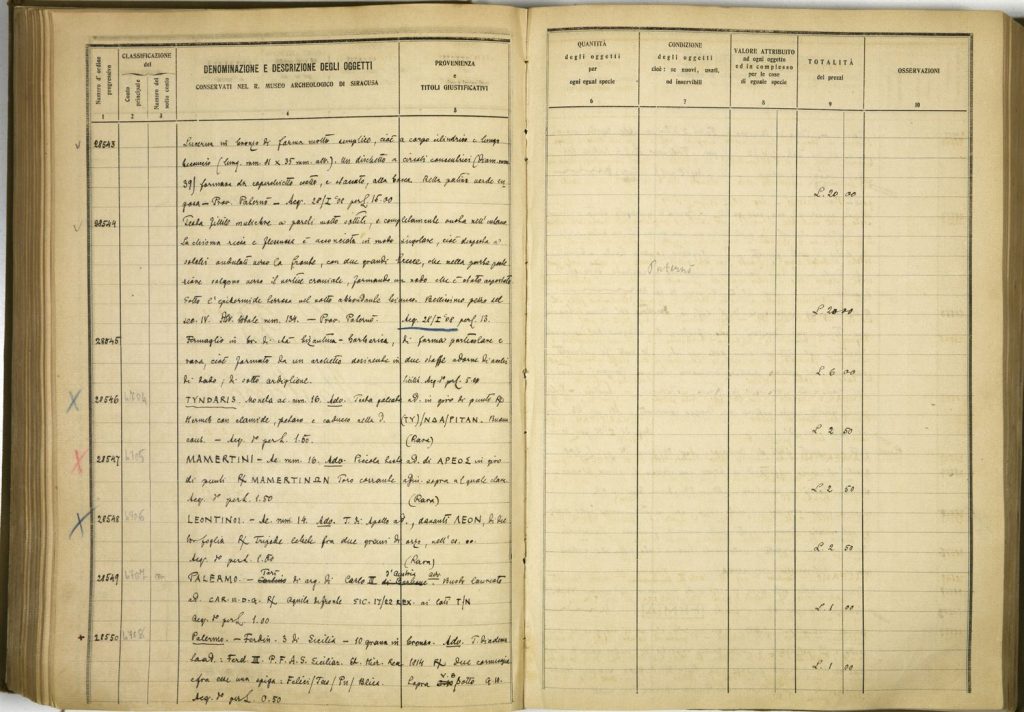 Numero d'ordine progressivo
CLASSIFICAZIONE del
Conto principale
Numero del sotto conto
DENOMINAZIONE E DESCRIZIONE DEGLI OGGETTI
CONSERVATI NEL R. MUSEO ARCHEOLOGICO DI SIRACUSA
PROVENIENZA
e
TITOLI GIUSTIFICATIVI
QUANTITÀ
degli oggetti
per
ogni egual specie
CONDIZIONE
degli oggetti
cioè: se nuovi, usati,
od inservibili
VALORE ATTRIBUITO
ad ogni oggetto
od in complesso
per le cose
di eguale specie
TOTALITÀ
dei prezzi
OSSERVAZIONI
1 2 3 4 5 6 7 8 9 10
28543 Lucerna in bronzo di forma molto semplice, cioè a corpo cilindrico e lungo
(lung. mm. x 35 mm. alt.). Un dischetto a circoli concentrici (Diam. mm.
39) formava da coperchietto, e staccato, alla bocca. Bella patina verde
– Prov. Paternò – Acq. 28/I '08 per L. 16.00
L. 20 00
28544 Testa fittile muliebre a pareti molto sottili, e completamente vuota nell'interno
La chioma riccia e è acconciata in modo singolare, cioè disposta a
ondulati verso la fronte, con due grandi trecce, che nella parte
salgono verso il vertice craniale, formando un nodo che è stato asportato
sotto l'epidermide terrosa nel molto abbondante bianco. Bellissimo pezzo del
sec. IV. totale mm. 134. – Prov. Paternò. Acq. 28/I '08 per L. 13.
Paternò
L. 20 00
28545 Formaglio in br. di età bizantina-barbarica, di forma particolare e
rara, cioè formato da un archetto desinente in due staffe adorne di
di dado, di sotto ardiglione. Acq. per L. 5.00
L. 6 00
28546 4704 TYNDARIS. Moneta ae. mm. 16. Adv. Testa ad. in giro di punti R/
Hermes con clamide, petaso e caduceo nella d. (TY)/NΔA/PITAN. Buona
cons. – Acq. per L. 1.50. (Rara)
L. 2 50
28547 4705 MAMERTINI – Ae. mm. 16. Adv. Piccola testa ad. di ΑΡΕΟΣ in giro
di punti R/ ΜΑΜΕΡΤΙΝΩΝ Toro corrente sopra al quale
Acq. per L. 1.50 (Rara)
L. 2 50
28548 4706 LEONTINOI. – Ae. mm. 14. Adv. T. di Apollo ad., davanti ΛΕΟΝ, di
foglia R/ Tripode fra due grani di orzo, nell'es.
Acq. per L. 1.80 (Rara)
L. 2 50
28549 4707 PALERMO. – Tarì di arg. di Carlo III d'Austria adv. Busto laureato
ad. CAR. III. D. G. R/ Aquila difronte SIC. 17/22 REX. ai lati T/N
Acq. per L. 1.00
L. 1 00
28550 4708 Palermo. – Ferdin. 3 di Sicilia – 10 grana in bronzo. Adv. T. diadema
ad: Ferd III. P. F. A. S. Siciliar. Et Hier. Rex 1814 R/ Due cornucopie
e fra esse una spiga: Felici/Tas/Pu/Blica. Sopra V. B sotto G. 10.
Acq. per L. 0.50
L. 1 00